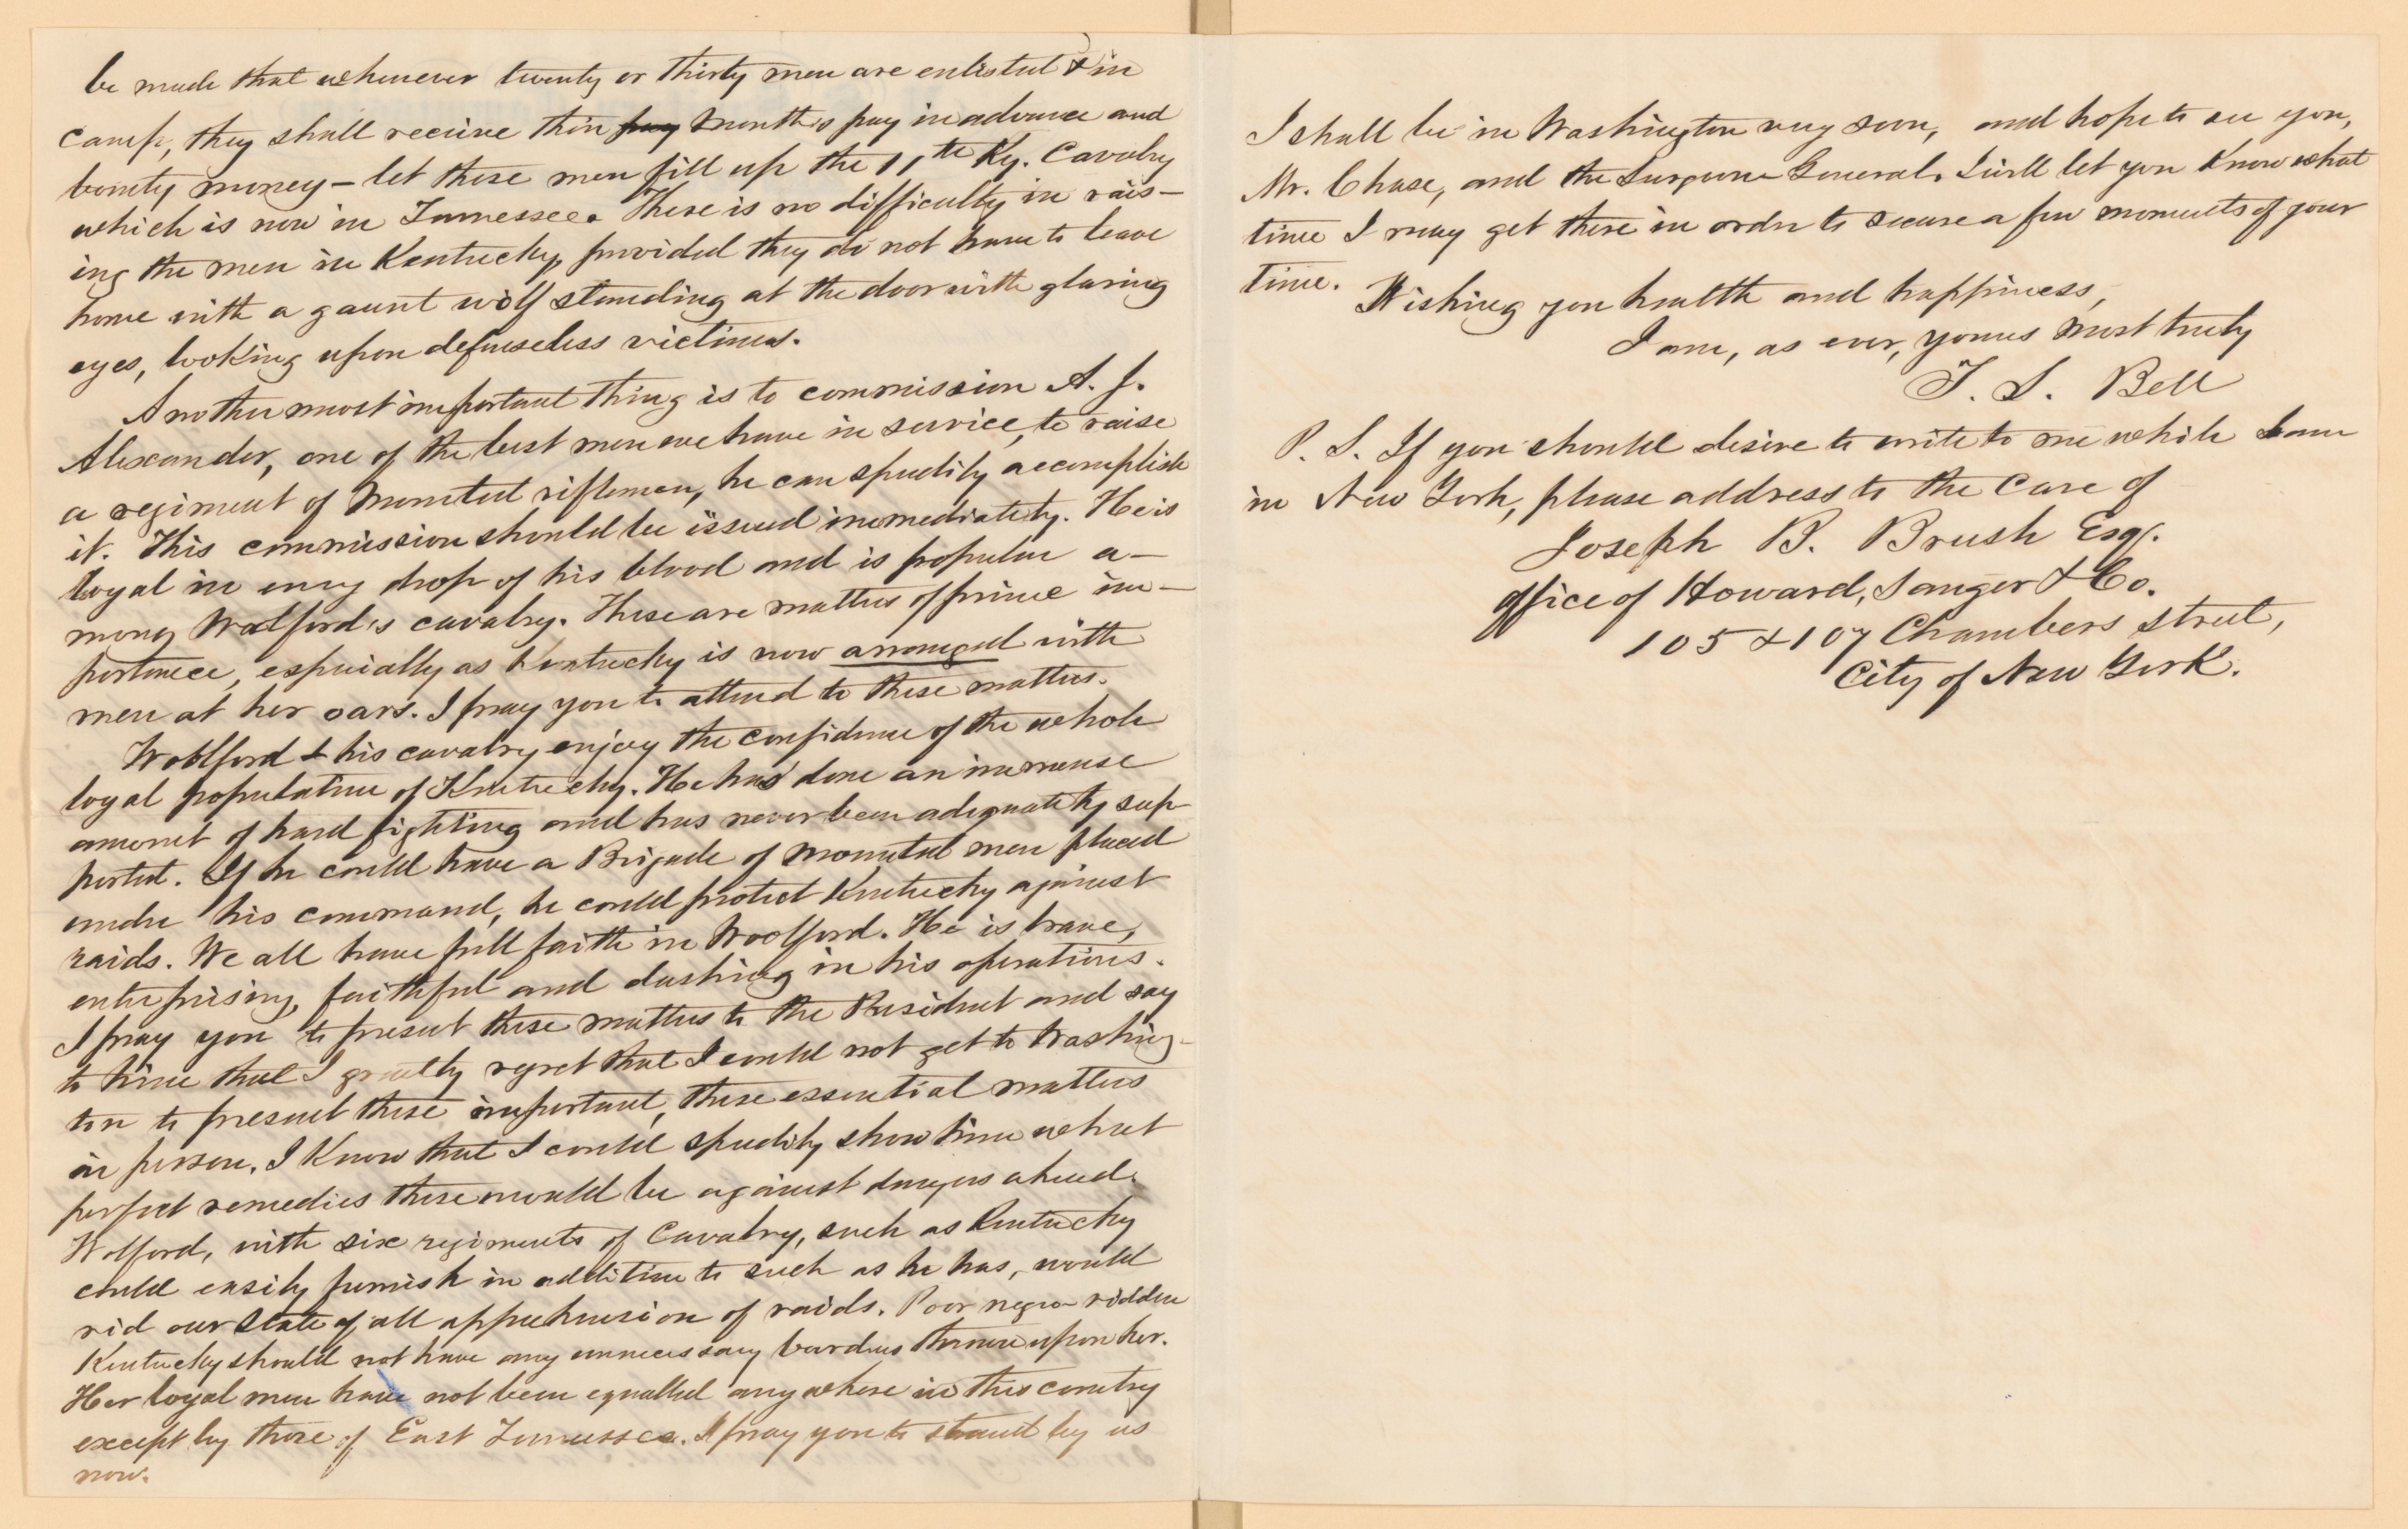 be made that whenever twenty or thirty men are enlisted & in
camp, they shall receive their pay month's pay in advance and
bounty money – let these men fill up the 11th Ky. Cavalry
which is now in Tennessee. There is no difficulty in rais-
ing the men in Kentucky, provided they do not have to leave
home with a gaunt wolf standing at the door with glaring
eyes, looking upon defenseless victims.
Another most important thing is to commission A. J.
Alexander, one of the best men we have in service, to raise
a regiment of mounted riflemen, he can speedily accomplish
it. This commission should be issued immediately. He is
loyal in every drop of his blood and is popular a-
mong Wolford's cavalry. These are matters of prime im-
portance, especially as Kentucky is now arranged with
men at her oars. I pray you to attend to these matters.
Woolford & his cavalry enjoy the confidence of the whole
loyal population of Kentucky. He has done an immense
amount of hard fighting and has never been adequately sup-
ported. If he could have a Brigade of mounted men placed
under his command, he could protect Kentucky against
raids. We all have full faith in Woolford. He is brave,
enterprising, faithful and dashing in his operations.
I pray you to present these matters to the President and say
to him that I greatly regret that I could not get to Washing-
ton to present these important, these essential matters
in person. I know that I could speedily show him what
perfect remedies these would be against dangers ahead.
Wolford, with six regiments of Cavalry, such as Kentucky
could easily furnish in addition to such as he has, would
rid our State of all apprehension of raids. Poor negro ridden
Kentucky should not have any unnecessary burdens thrown upon her.
Her loyal men have not been equalled any where in this country
except by those of East Tennessee. I pray you to stand by us
now.
I shall be in Washington very soon, and hope to see you,
Mr. Chase, and the Surgeon General. I will let you know what
time I may get there in order to secure a few moments of your
time.
Wishing you health and happiness,
I am, as ever, yours most truly
T. S. Bell
P. S. If you should desire to write to me while I am
in New York, please address to the care of
Joseph B. Brush Esq.
office of Howard, Sanger & Co.
105 & 107 Chambers Street,
City of New York.